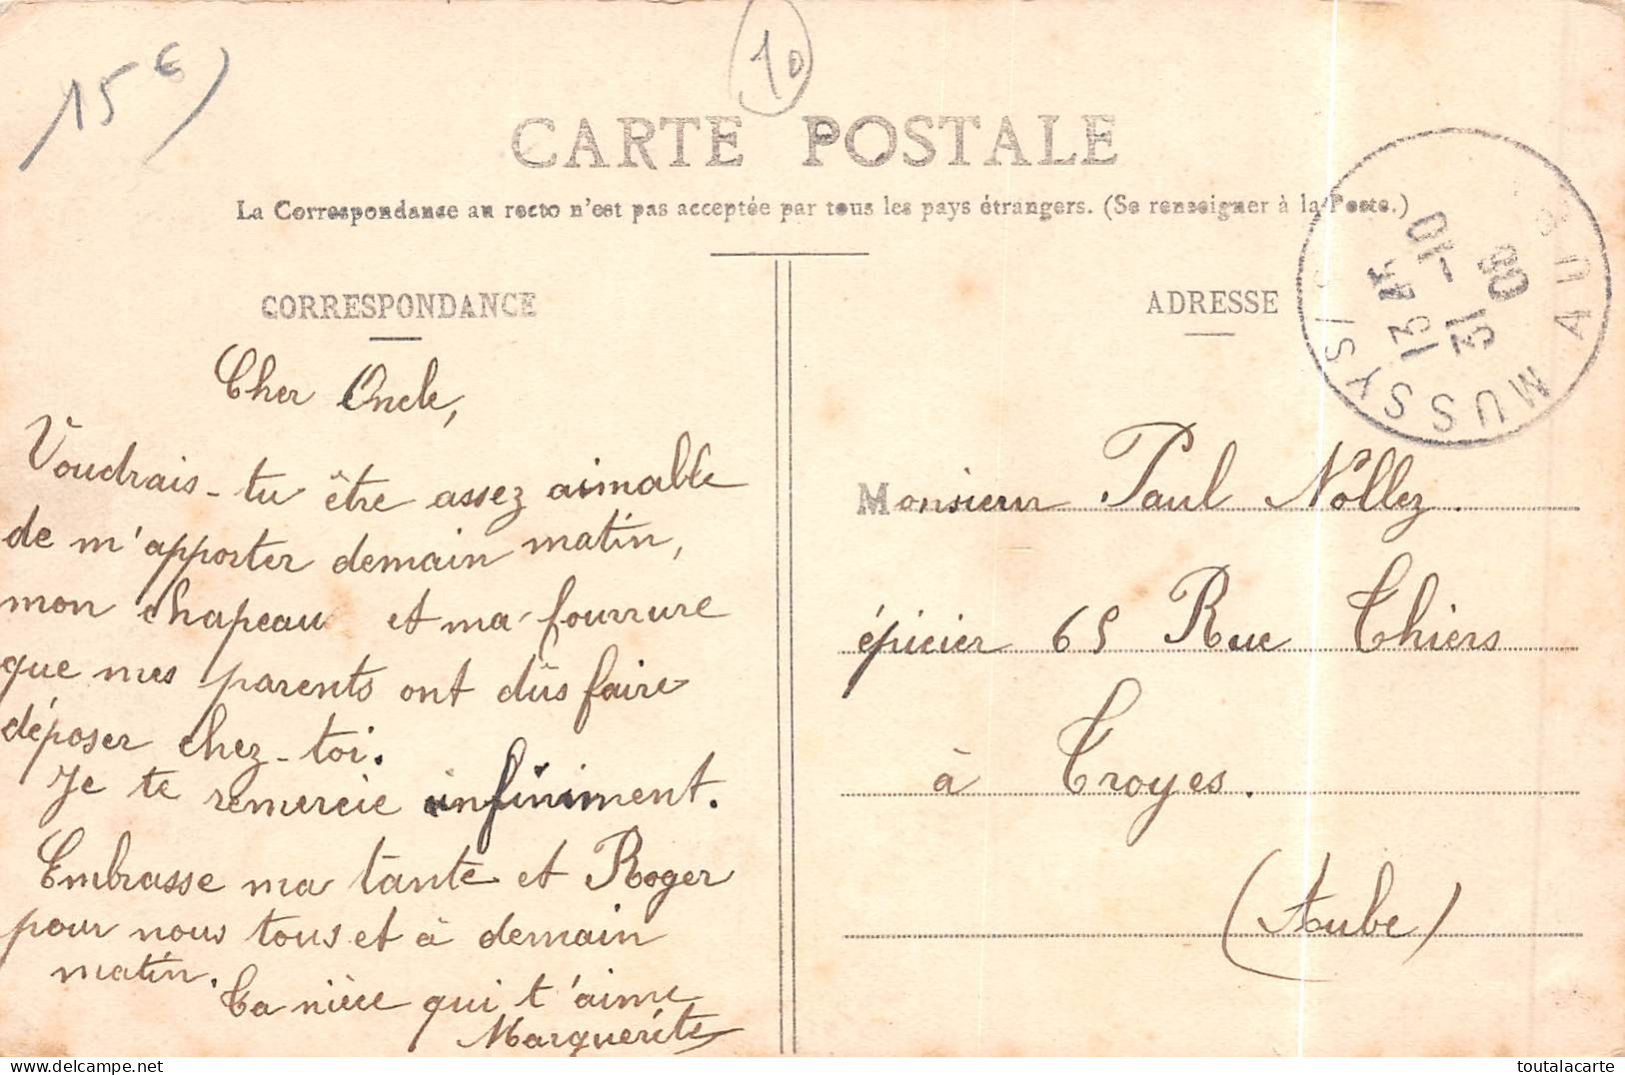 15€
10
CARTE POSTALE
La Correspondance au recto n'est pas acceptée par tous les pays étrangers. (Se renseigner à la Poste.)
CORRESPONDANCE
Cher Oncle,
Voudrais-tu être assez aimable
de m'apporter demain matin,
mon chapeau et ma fourrure
que mes parents ont dûs faire
déposer chez-toi.
Je te remercie infiniment.
Embrasse ma tante et Roger
pour nous tous et à demain
matin.
Ta nièce qui t'aime
Marguerite
ADRESSE
MUSSY S/ S
AUBE
13 45
31 -10
08
Monsieur Paul Nollez.
épicier 65 Rue Thiers
à Troyes.
(Aube)
toutalacarte